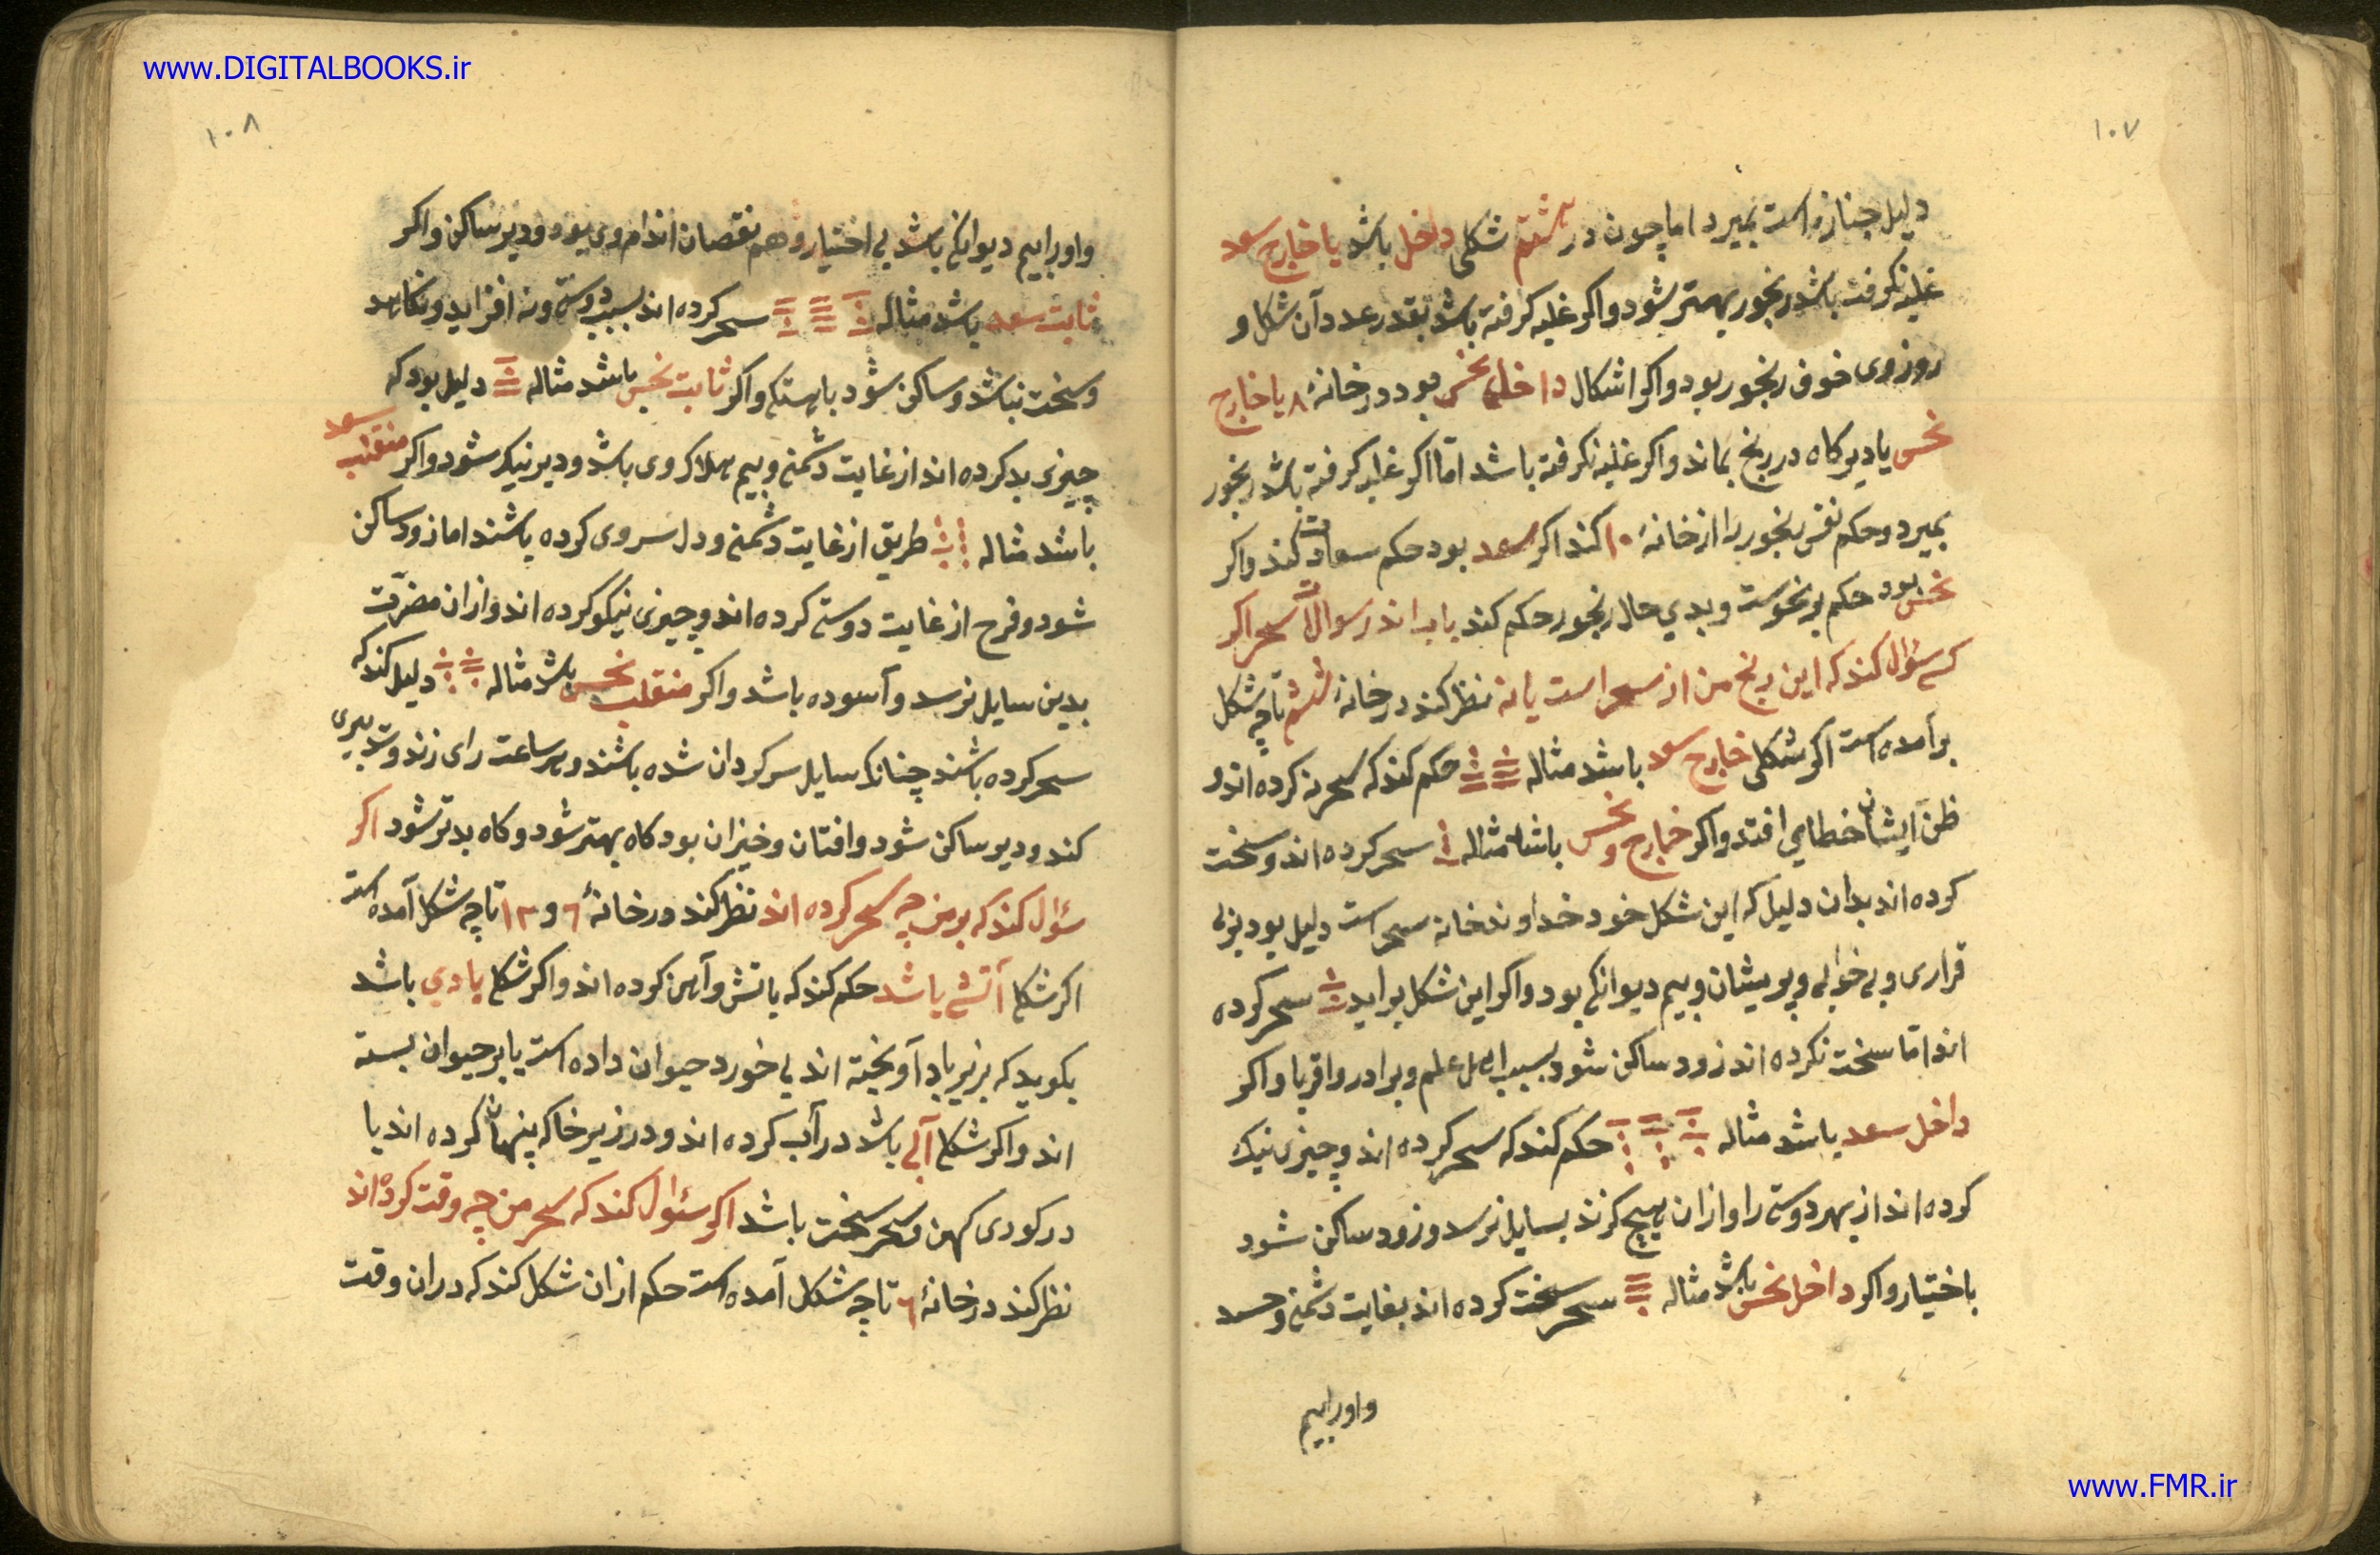 www.DIGITALBOOKS.ir
۱۰۷
دلیل جنازه است بمیرد اما چون در هشتم شکلی داخل باشد یا خارج سعد
غلبه نکرفته باشد رنجور بهتر شود واکر غلبه کرفته باشد بقدر عدد آن شکل و
روز وی خوف رنجور بود واکر اشکال داخل نحس بود در خانهٔ ۸ یا خارج
نحس یا دیر کاه در رنج بماند واکر غلبه نکرفته باشد اما اکر غلبه کرفته باشد رنجور
بمیرد و حکم نفس رنجور را از خانهٔ ۱۰ کند اکر سعد بود حکم سعادت کند واکر
نحس بود حکم بر نحوست و بدی حال رنجور حکم کند باب اندر سوالات سحر اکر
کسی سؤال کند که این رنج من از سحر است یا نه نظر کند در خانهٔ ششم تا چه شکل
برآمده است اکر شکلی خارج سعد باشد مثاله حکم کند که سحر نکرده اند و
ظن ایشان خطا می افتد واکر خارج و نحس باشد مثاله سحر کرده اند و سخت
کرده اند بدان دلیل که این شکل خود خداوند خانه سحر است دلیل بود بر بی
قراری و بی خوابی و پریشان و بیم دیوانکی بود واکر این شکل براید سحر کرده
اند اما سخت نکرده اند زود ساکن شود بسبب اهل علم و برادر و اقربا واکر
داخل سعد باشد مثاله حکم کند که سحر کرده اند و چیزی نیک
کرده اند از بهر دوستی را و ازان هیچ کزند بسایل نرسد و زود ساکن شود
باختیار واکر داخل نحس باشد مثاله سحر سخت کرده اند بغایت دشمنی و حسد
واورا بیم
۱۰۸
واورا بیم دیوانکی باشد بی اختیار و هم نقصان اندام وی بود و دیر ساکن واکر
ثابت سعد باشد مثاله سحر کرده اند بسبب دوستی و نه افزاید و نکاهد
و سخت نباشد و ساکن شود باهستکی واکر ثابت نحس باشد مثاله دلیل بود که
چیزی بد کرده اند از غایت دشمنی و بیم هلاک وی باشد و دیر نیک شود واکر منقلب سعد
باشد مثاله طریق از غایت دشمنی و دل سردی کرده باشند اما زود ساکن
شود و فرح از غایت دوستی کرده اند و چیزی نیکو کرده اند و ازان مضرّت
بدین سایل نرسد و آسوده باشد واکر منقلب نحس باشد مثاله دلیل کند که
سحر کرده باشند چنانکه سایل سرکردان شده باشند و هر ساعت رای زند و تدبیری
کند و دیر ساکن شود و افتان و خیزان بود کاه بهتر شود و کاه بدتر شود اکر
سؤال کند که بر من چه سحر کرده اند نظر کند در خانهٔ ۶ و ۱۳ تا چه شکل آمده است
اکر شکل آتشی باشد حکم کند که باتش و آهن کرده اند واکر شکل بادی باشد
بکوید که بزیر باد آویخته اند بی خورد حیوان داده است یا بر حیوان بسته
اند واکر شکل آبی باشد در آب کرده اند و در زیر خاک پنهان کرده اند یا
در کوری کهن و سحر سخت باشد اکر سئوال کند که سحر من چه وقت کرده اند
نظر کند در خانهٔ ۶ تا چه شکل آمده است حکم ازان شکل کند که دران وقت
www.FMR.ir